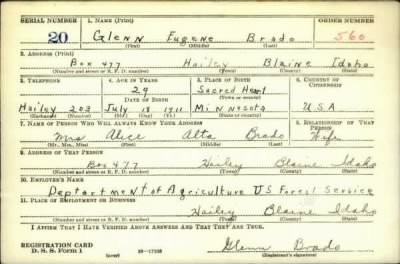 SERIAL NUMBER 1. NAME (Print) ORDER NUMBER
20 Glenn Eugene Brado 560
(First) (Middle) (Last)
2. ADDRESS (Print)
Box 477 Hailey Blaine Idaho
(Number and street or R. F. D. number) (Town) (County) (State)
3. TELEPHONE 4. AGE IN YEARS 5. PLACE OF BIRTH 6. COUNTRY OF CITIZENSHIP
29 Sacred Heart
DATE OF BIRTH (Town or county)
Hailey 203 July 18 1911 Minnesota U.S.A
(Exchange) (Number) (Mo.) (Day) (Yr.) (State or country)
7. NAME OF PERSON WHO WILL ALWAYS KNOW YOUR ADDRESS 8. RELATIONSHIP OF THAT PERSON
Mrs Alice Alta Brado Wife
(Mr., Mrs., Miss) (First) (Middle) (Last)
9. ADDRESS OF THAT PERSON
Box 477 Hailey Blaine Idaho
(Number and street or R. F. D. number) (Town) (County) (State)
10. EMPLOYER'S NAME
Deptartment of Agriculture US Forest Service
11. PLACE OF EMPLOYMENT OR BUSINESS
Hailey Blaine Idaho
(Number and street or R. F. D. number) (Town) (County) (State)
I AFFIRM THAT I HAVE VERIFIED ABOVE ANSWERS AND THAT THEY ARE TRUE.
REGISTRATION CARD
D. S. S. Form 1 (over) Glenn Brado
(Registrant's signature)